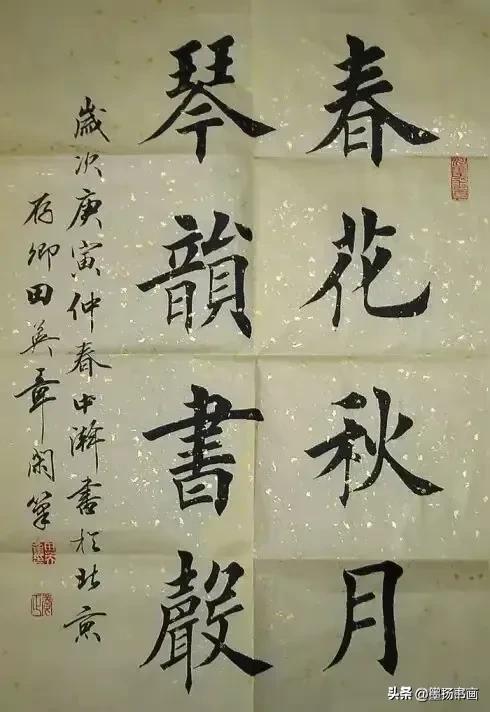 春花秋月
琴韻書聲
歲次庚寅仲春中澣書於北京
存卿田英章閑筆
头条@墨扬书画